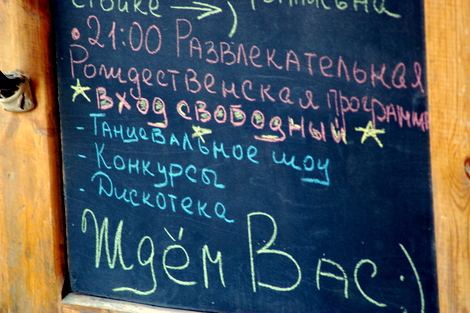 стойке →
• 21:00 Развлекательная
Рождественская программа
Вход свободный
- Танцевальное шоу
- Конкурсы
- Дискотека
Ждём Вас :)